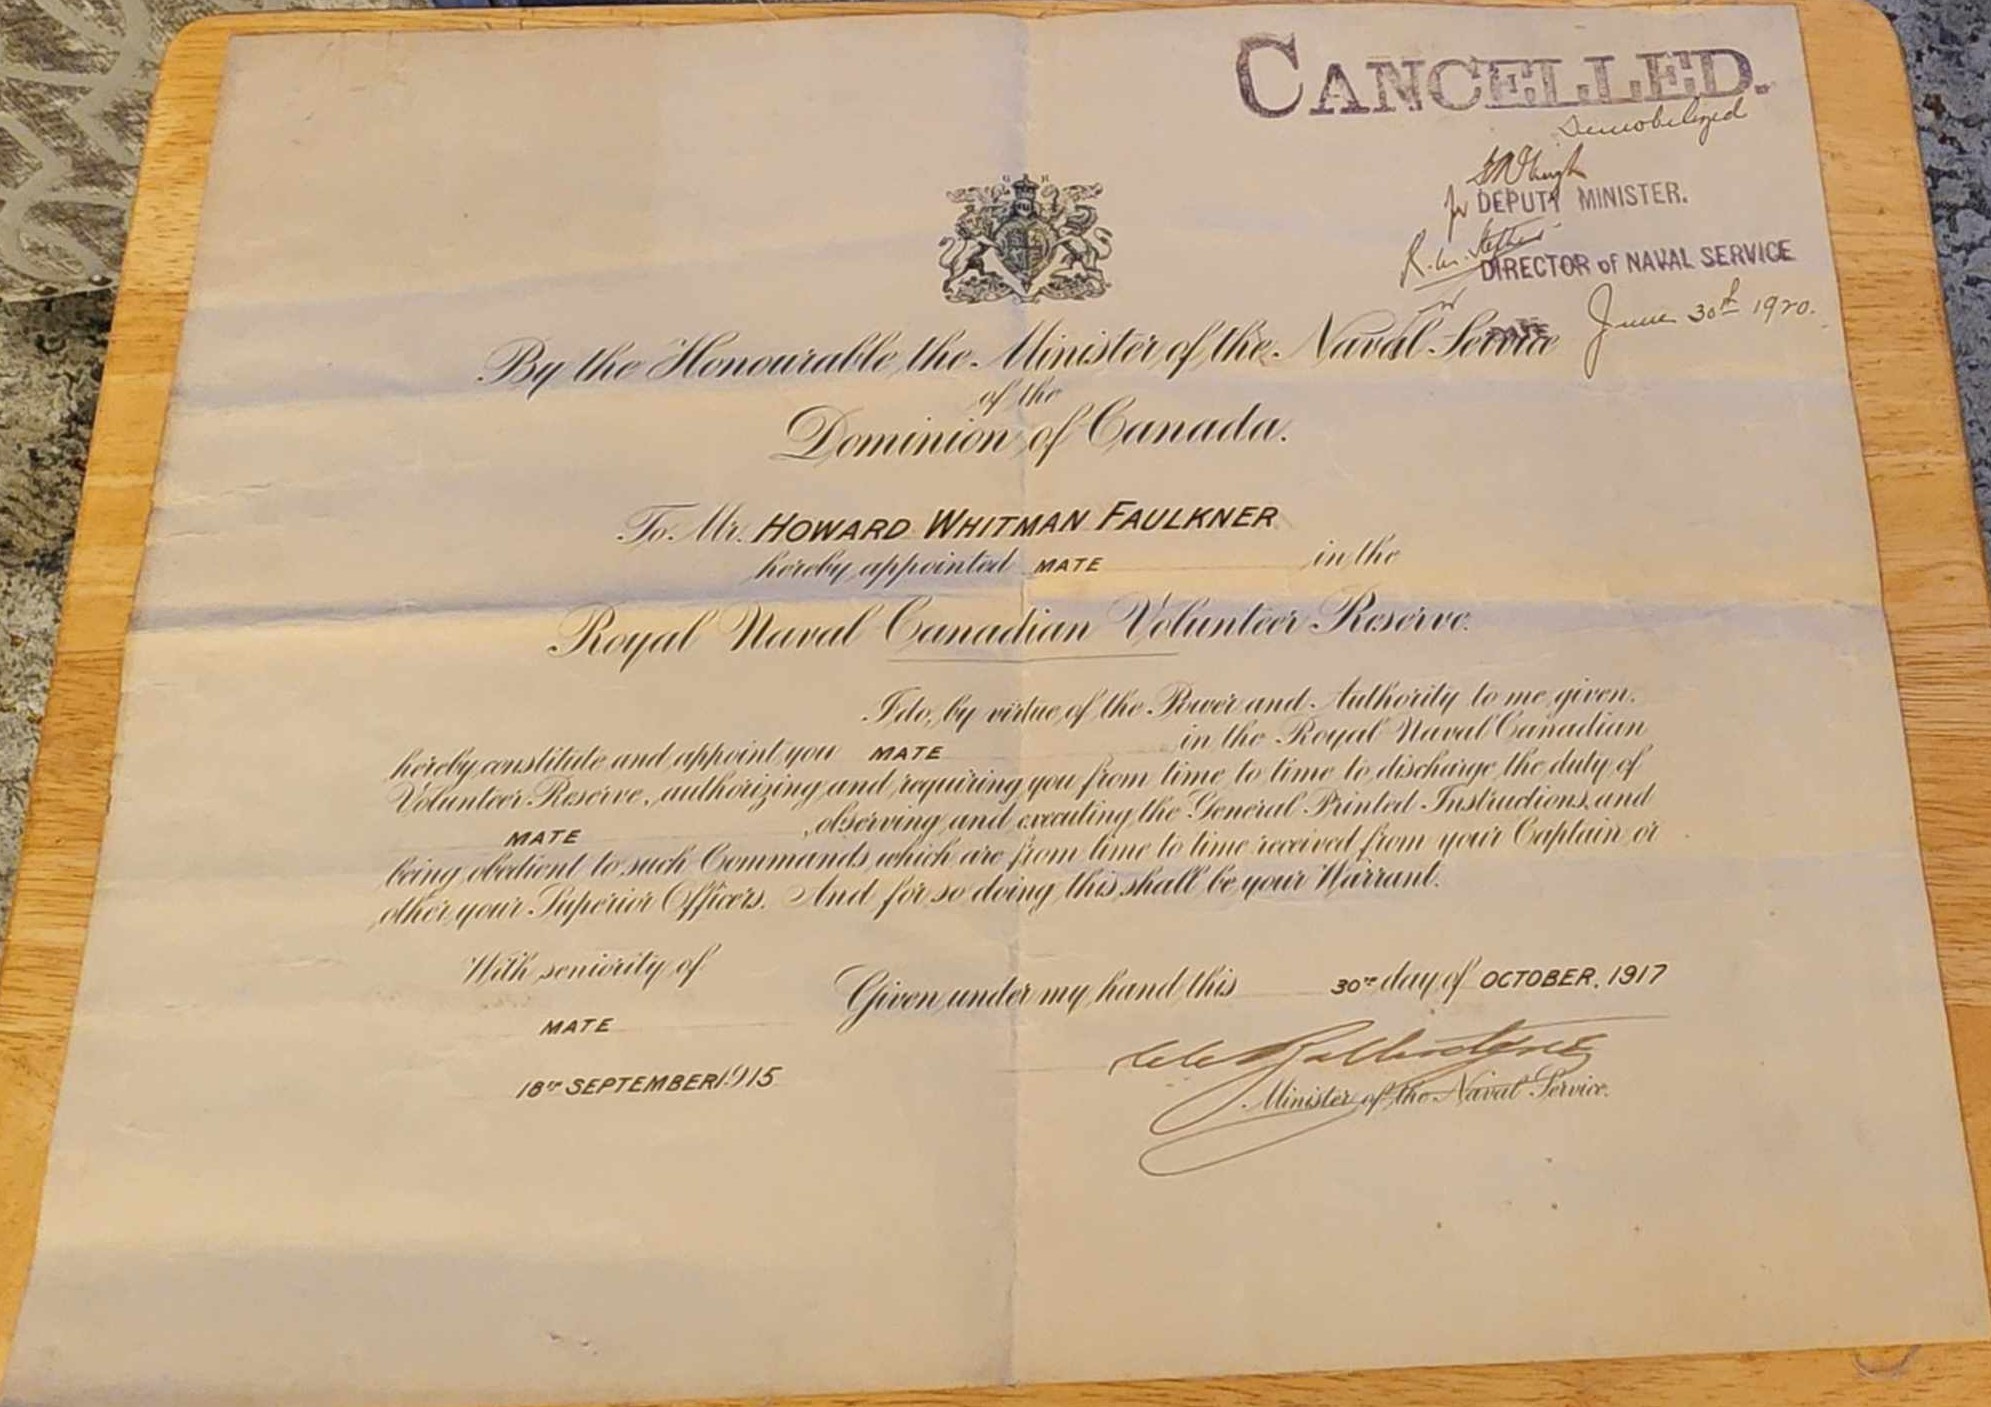 CANCELLED.
Demobilized
for DEPUTY MINISTER.
R. W.
DIRECTOR of NAVAL SERVICE
DATE June 30th 1920.
G R
By the Honourable the Minister of the Naval Service
of the
Dominion of Canada.
To Mr. HOWARD WHITMAN FAULKNER
hereby appointed MATE in the
Royal Naval Canadian Volunteer Reserve.
I do, by virtue of the Power and Authority to me given,
hereby constitute and appoint you MATE in the Royal Naval Canadian
Volunteer Reserve, authorizing and requiring you from time to time to discharge the duty of
MATE , observing and executing the General Printed Instructions, and
being obedient to such Commands which are from time to time received from your Captain or
other your Superior Officers. And for so doing this shall be your Warrant.
With seniority of
MATE
18TH SEPTEMBER 1915
Given under my hand this 30TH day of OCTOBER, 1917
Ballantyne
Minister of the Naval Service.